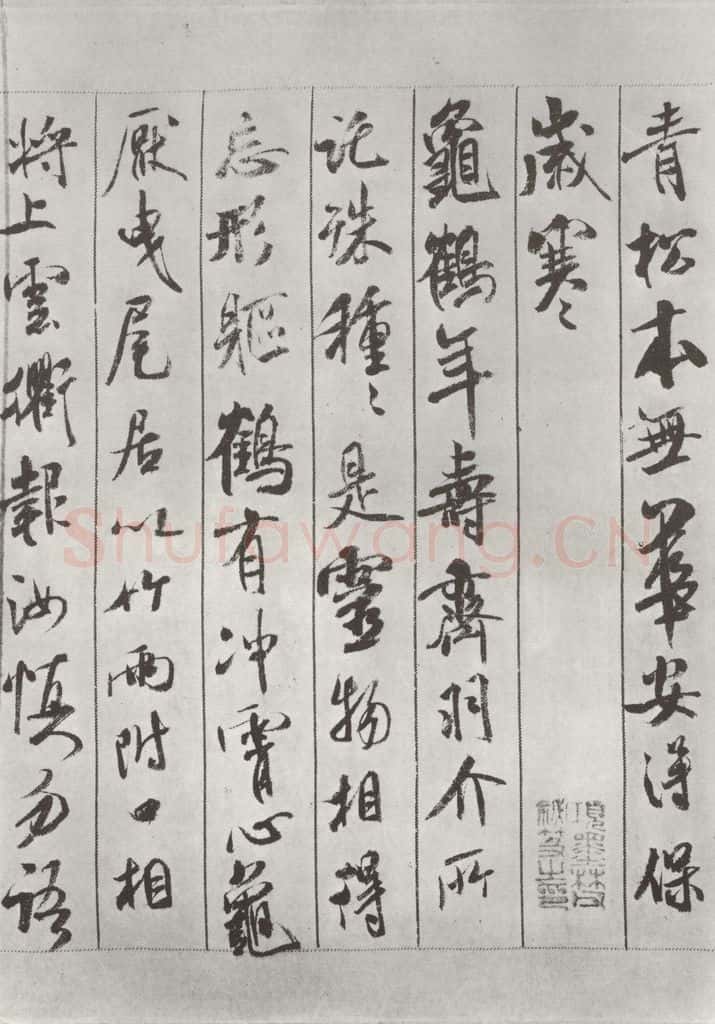 青松本無華安得保
歲寒〻
龜鶴年壽齊羽介所
託殊種〻是靈物相得
忘形軀鶴有沖霄心龜
厭曳尾居以竹兩附口相
將上雲衢報汝慎勿語
Shufawang.CN